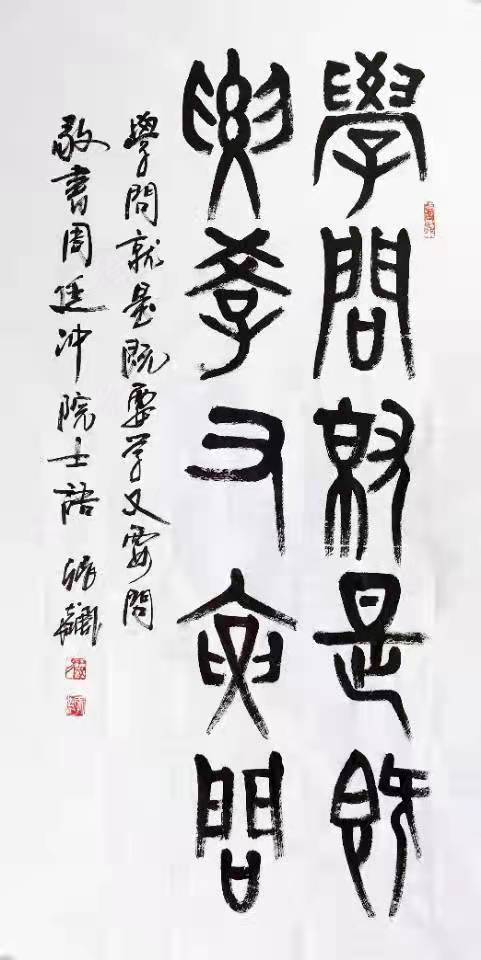 學問就是既
要學又要問
學問就是既要学又要問
敬書周廷冲院士語